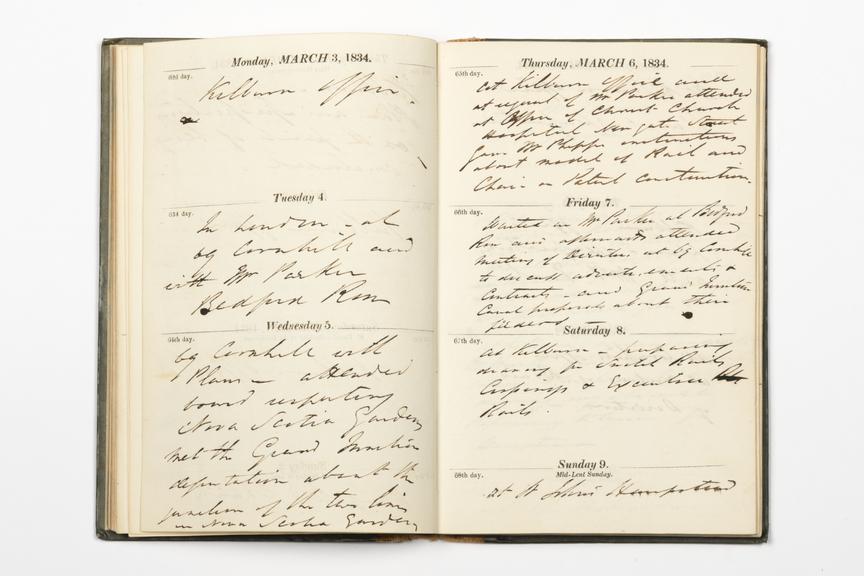 Monday, MARCH 3, 1834.
62d day.
Kilburn Office.
Tuesday 4.
63d day.
In London - at
69 Cornhill and
with Mr Parker
Bedford Row
Wednesday 5.
64th day.
69 Cornhill with
Plans - attended
board respecting
Nova Scotia Gardens
met the Grand Junction
deputation about the
junction of the two lines
in Nova Scotia Gardens
Thursday, MARCH 6, 1834.
65th day.
at Kilburn office and
at request of Mr Parker attended
at Office of Christ Church
Hospital Newgate Street
gave Mr Phipps instructions
about model of Rail and
Chair on Patent construction.
Friday 7.
66th day.
Waited on Mr Parker at Bedford
Row and afterwards attended
meeting of Directors at 69 Cornhill
to discuss advertisements &
Contracts - and Grand Junction
Canal proposals about their
Saturday 8.
67th day.
at Kilburn - preparing
drawing for Rails
& Rails
Rails.
Sunday 9.
Mid-Lent Sunday.
68th day.
at St Johns Hampstead